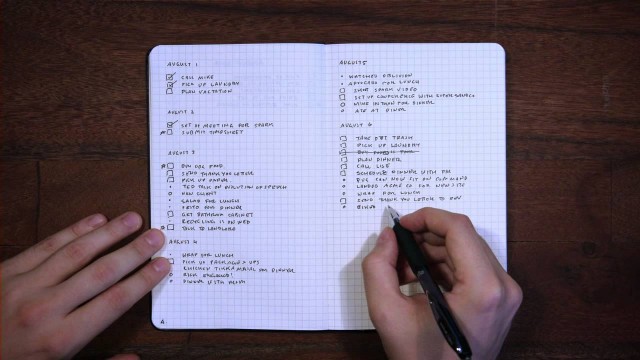 AUGUST 1
CALL MIKE
PICK UP LAUNDRY
PLAN VACTATION
AUGUST 2
SET UP MEETING FOR SPARK
SUBMIT TIMESHEET
AUGUST 3
BUY DOG FOOD
SEND THANK YOU LETTER
PICK UP PAPER
TED TALK ON EVOLUTION OF SPEECH
NEW CLIENT
SALAD FOR LUNCH
PESTO FOR DINNER
GET BATHROOM CABINET
RECYCLING IS ON WED
TALK TO LANDLORD
AUGUST 4
WRAP FOR LUNCH
PICK UP PACKAGES @ UPS
CHICKEN TIKKA MASALA FOR DINNER
DINNER WITH
AUGUST 5
WATCHED OBLIVION
AVOCADO FOR LUNCH
SEND SPARK VIDEO
SET UP CONFERENCE WITH
FOR DINNER
ATE AT DINER
AUGUST 6
TAKE OUT TRASH
PICK UP LAUNDRY
PLAN DINNER
CALL LISE
SCHEDULE DINNER WITH PM
CAN NOW SIT ON COMMAND
LANDED ACME CO FOR NEW SITE
WRAP FOR LUNCH
SEND THANK YOU LETTER TO